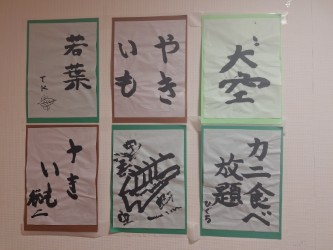 若葉
T.K
やき
いも
大空
やき
いも
カニ食べ
放題